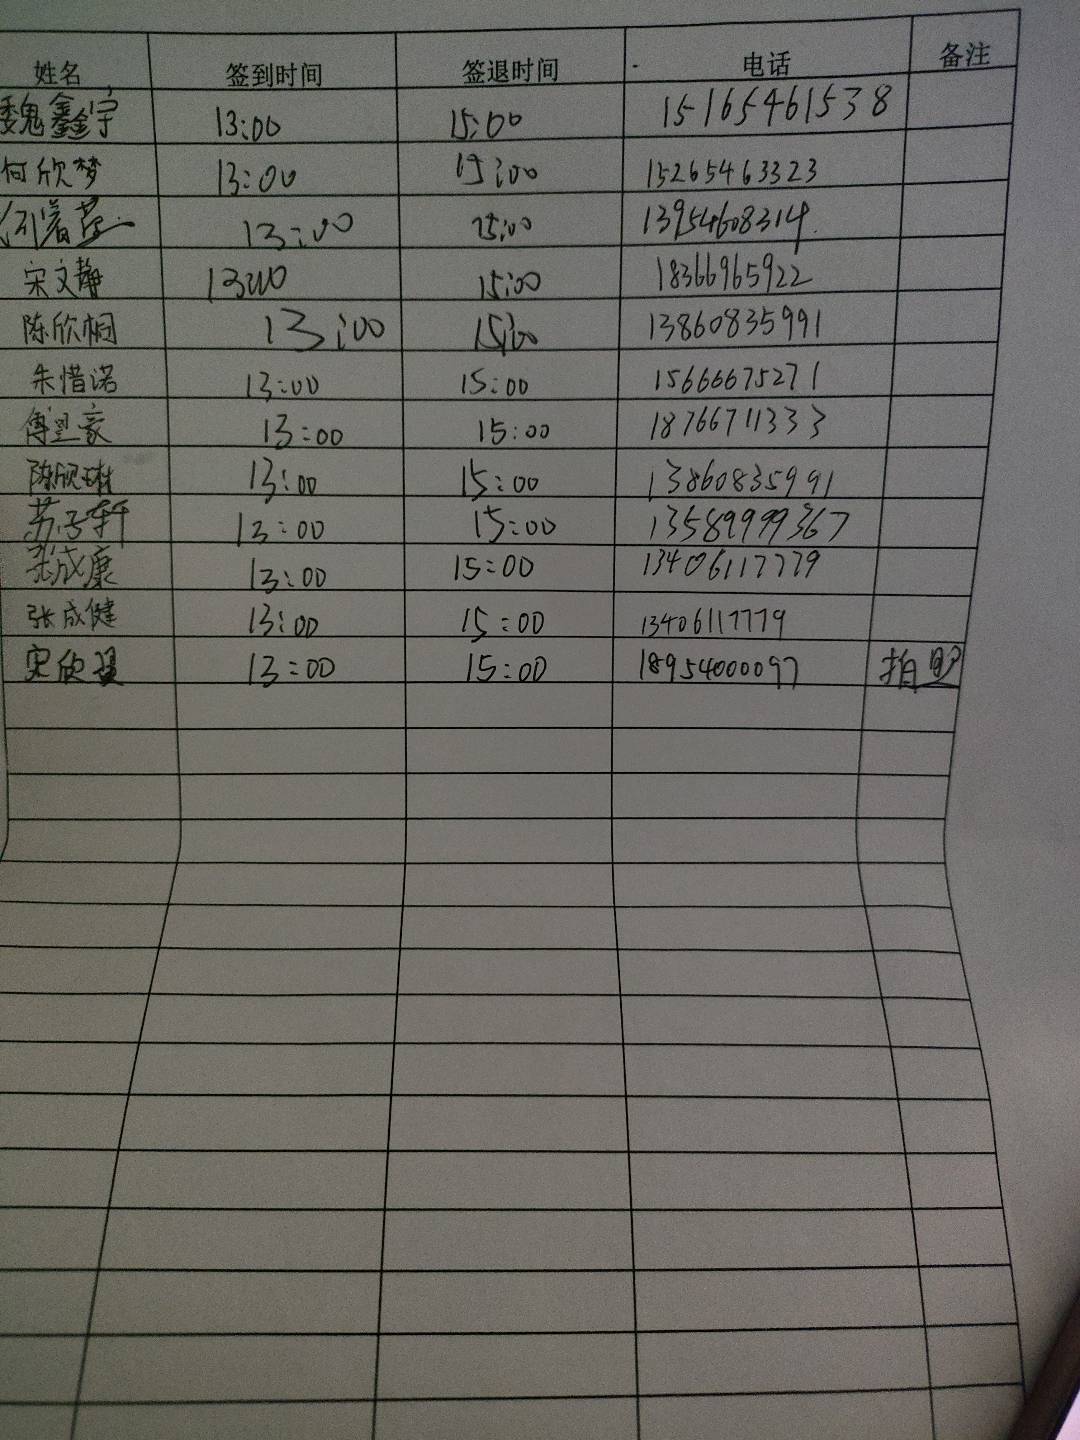 姓名 签到时间 签退时间 电话 备注
魏鑫宇 13:00 15:00 15165461538
何欣梦 13:00 15:00 15265463323
13:00 15:00 13954608314
宋文静 13:00 15:00 18366965922
陈欣桐 13:00 15:00 13860835991
朱惜诺 13:00 15:00 15666675271
傅望豪 13:00 15:00 18766711333
陈欣琳 13:00 15:00 13860835991
苏子轩 13:00 15:00 13589999367
张成康 13:00 15:00 13406117779
张成健 13:00 15:00 13406117779
宋欣 13:00 15:00 18954000097 拍照